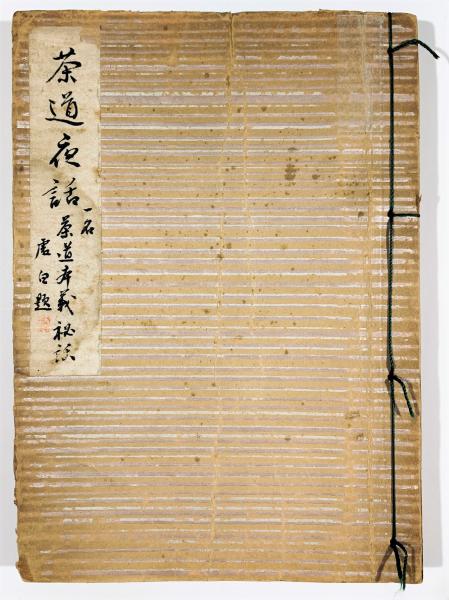 茶道夜話
一名
茶道本義秘話
虚白題